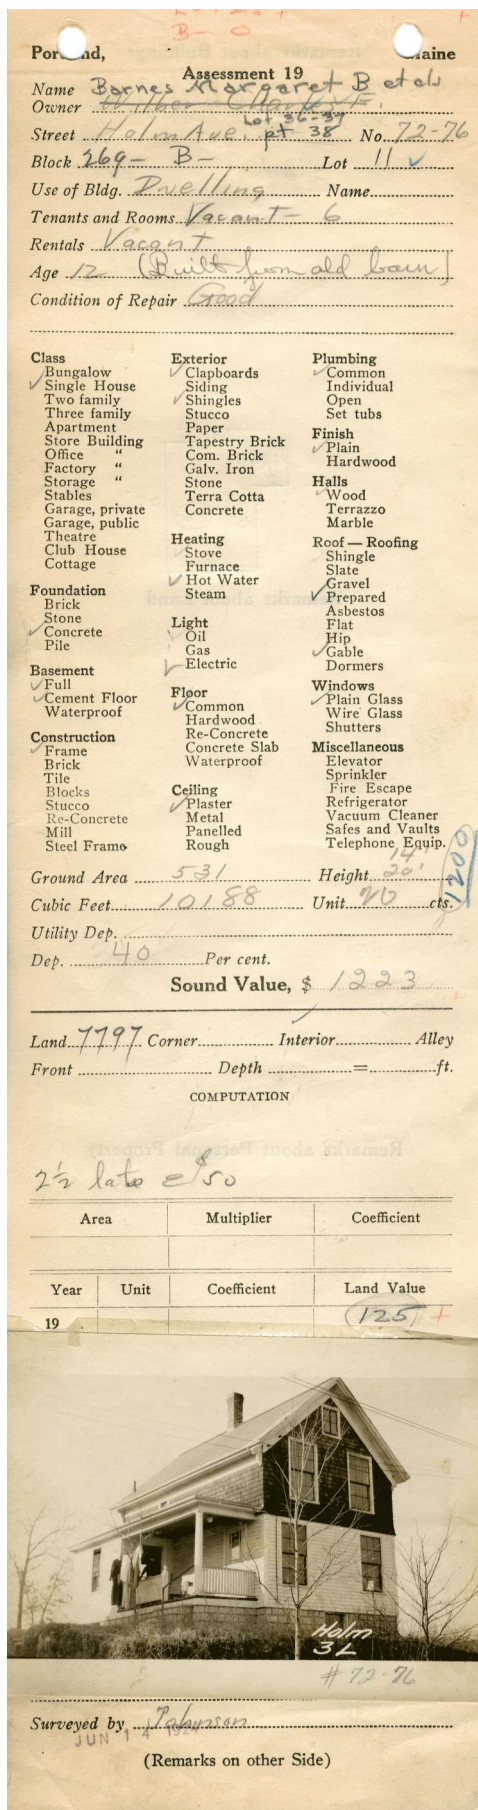 B- 0
Portland, Maine
Assessment 19
Name Barnes Margaret B et als
Owner Wilber Charles F.
Lot 36-37
Street Holm Ave. pt 38 No. 72-76
Block 269- B- Lot 11 ✓
Use of Bldg. Dwelling Name
Tenants and Rooms Vacant- 6
Rentals Vacant
Age 12 (Built from old barn)
Condition of Repair Good
Class
Bungalow
✓ Single House
Two family
Three family
Apartment
Store Building
Office "
Factory "
Storage "
Stables
Garage, private
Garage, public
Theatre
Club House
Cottage
Foundation
Brick
Stone
✓ Concrete
Pile
Basement
✓ Full
✓ Cement Floor
Waterproof
Construction
✓ Frame
Brick
Tile
Blocks
Stucco
Re-Concrete
Mill
Steel Frame
Exterior
✓ Clapboards
Siding
✓ Shingles
Stucco
Paper
Tapestry Brick
Com. Brick
Galv. Iron
Stone
Terra Cotta
Concrete
Heating
Stove
Furnace
✓ Hot Water
Steam
Light
Oil
Gas
✓ Electric
Floor
✓ Common
Hardwood
Re-Concrete
Concrete Slab
Waterproof
Ceiling
✓ Plaster
Metal
Panelled
Rough
Plumbing
✓ Common
Individual
Open
Set tubs
Finish
✓ Plain
Hardwood
Halls
✓ Wood
Terrazzo
Marble
Roof — Roofing
Shingle
Slate
Gravel
✓ Prepared
Asbestos
Flat
Hip
✓ Gable
Dormers
Windows
✓ Plain Glass
Wire Glass
Shutters
Miscellaneous
Elevator
Sprinkler
Fire Escape
Refrigerator
Vacuum Cleaner
Safes and Vaults
Telephone Equip.
14'
Ground Area 531 Height 20'
1200
Cubic Feet 10188 Unit 20 cts.
Utility Dep.
Dep. 40 Per cent.
Sound Value, $ 1223
Land 7797 Corner Interior ✓ Alley
Front Depth = ft.
COMPUTATION
2½ lots @ $50
Area Multiplier Coefficient
Year Unit Coefficient Land Value
19 125 +
Holm
3L
#72-76
Surveyed by Johnson
JUN 14 1924
(Remarks on other Side)